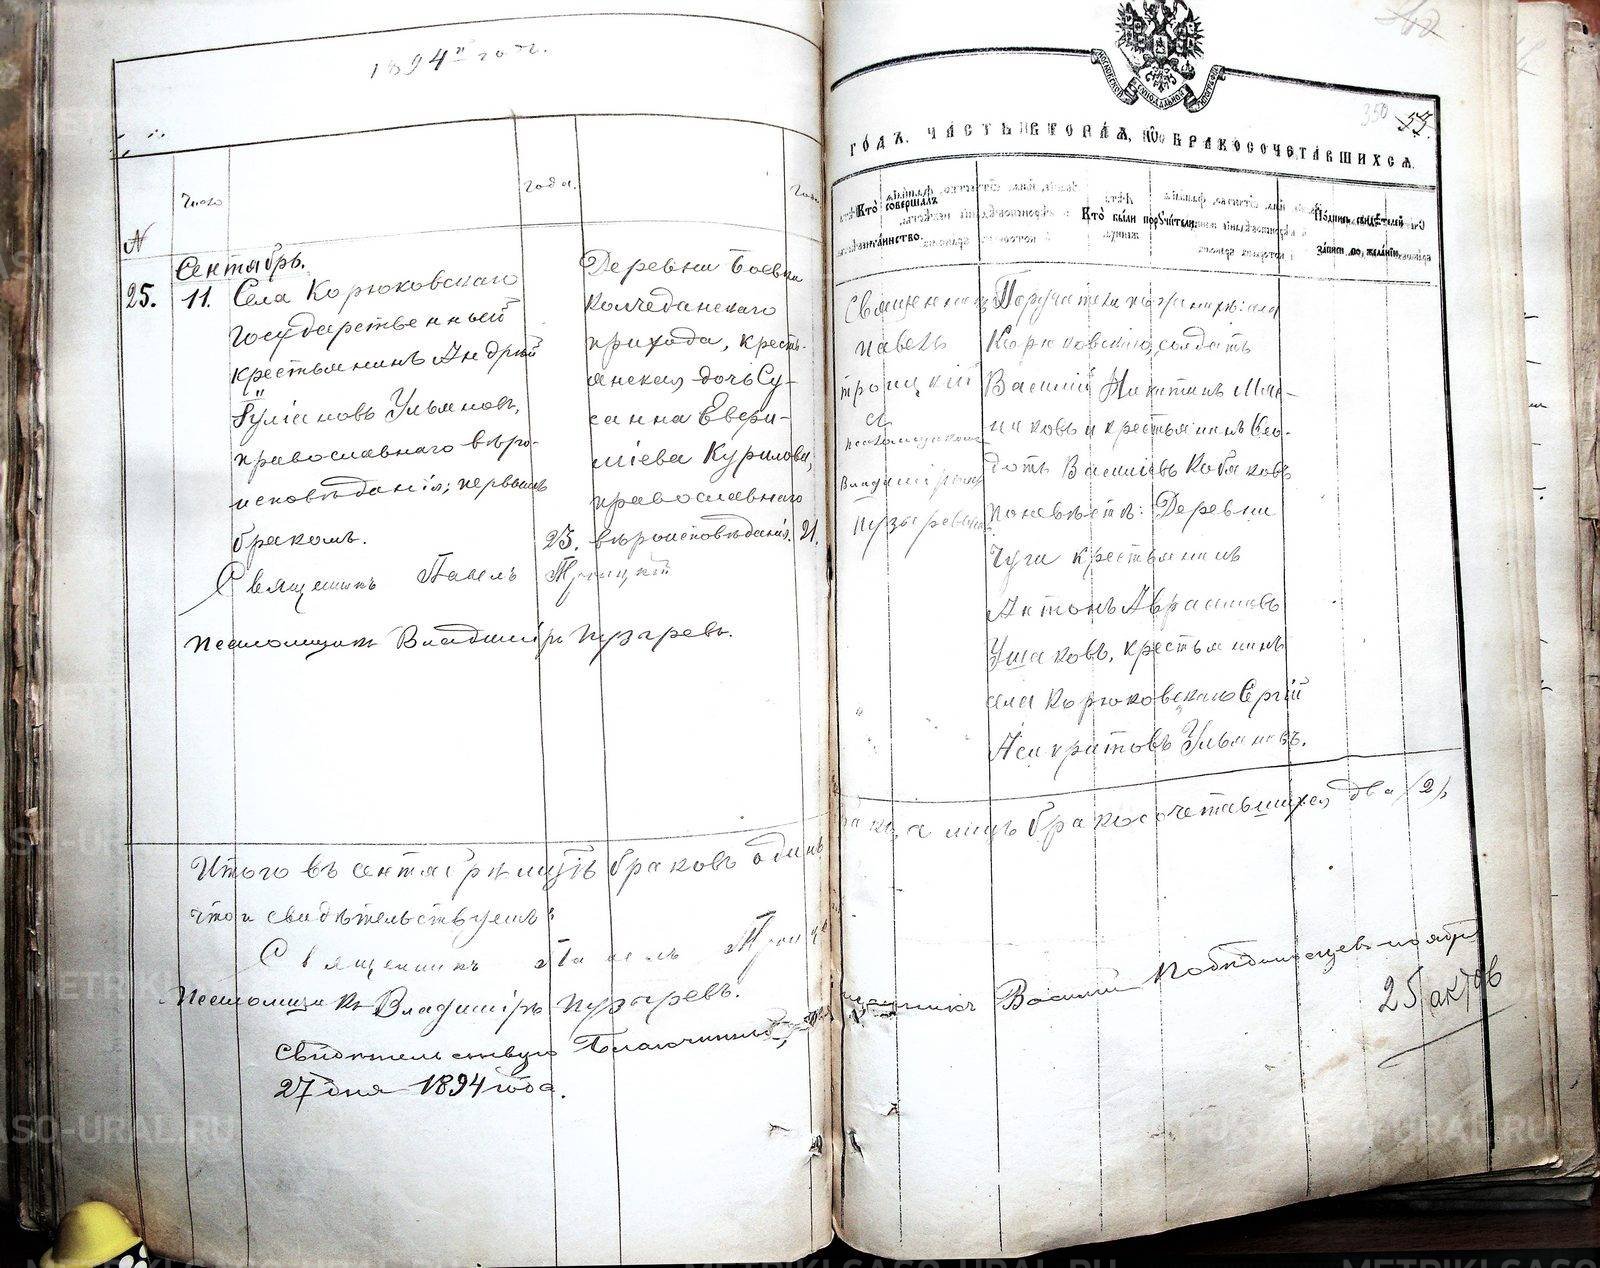 1894й годъ.
Число
года.
№
Сентябрь.
25.
11.
Села Корюковскаго
государственный
крестьянинъ Андрей
Іуліановъ Ульяновъ,
православнаго вѣро-
исповѣданія; первымъ
бракомъ.
25.
Деревни Боевки
Колчеданскаго
прихода, кресть-
янская дочь Су-
санна Евфи-
міева Курилова,
православнаго
вѣроисповѣданія.
21.
Священникъ Павелъ Троицкій
Псаломщикъ Владиміръ Пузыревъ.
Итого въ сентябрѣ мцѣ браковъ одинъ
что и свидѣтельствуемъ:
Священникъ Павелъ
Псаломщикъ Владиміръ Пузыревъ.
Свидѣтельствую Благочинный,
27 дня 1894 года.
350
53.
ГОДЪ. ЧАСТЬ ВТОРАЯ, О БРАКОСОЧЕТАВШИХСЯ.
Кто совершалъ
таинство.
Кто были поручители.
Подпись свидѣтелей
записи по желанію.
Священникъ
Павелъ
Троицкій
съ
псаломщикомъ
Владиміромъ
Пузыревымъ
Поручители по женихѣ: села
Корюковскаго солдатъ
Василій Никитинъ
и крестьянинъ Ѳео-
дотъ Василіевъ Кобяковъ
по невѣстѣ: Деревни
Чуги крестьянинъ
Антонъ Аврамовъ
Ушаковъ, крестьянинъ
села Корюковскаго Сергій
Асикритовъ Ульяновъ.
а лицъ бракосочетавшихся два (2).
Василій Побѣдинскій
ноября
25 актов